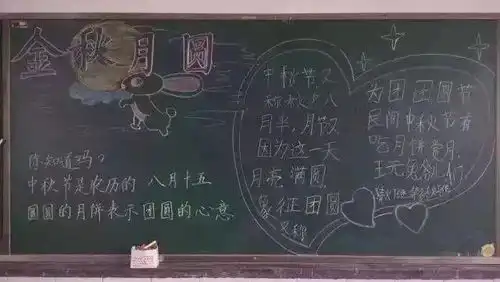 金秋月圆
你知道吗?
中秋节是农历的 八月十五
圆圆的月饼表示团圆的心意
中秋节又
称秋夕、八
月半,月节又
因为这一天
月亮满圆
象征团圆
又称
为团团圆节
民间中秋节有
吃月饼赏月